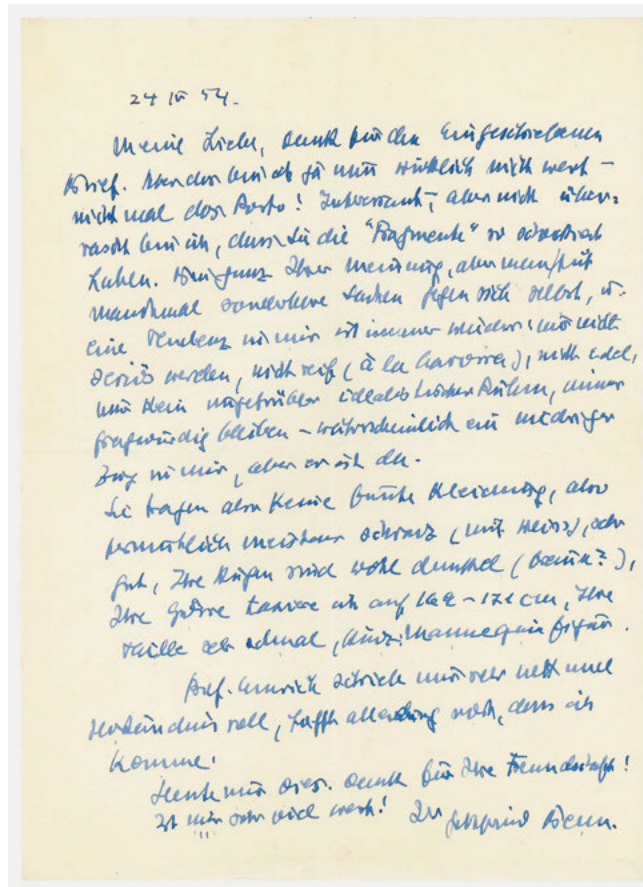 24 IV 54.
Meine Liebe, Dank für den eingeschriebenen
Brief. Aber das bin ich ja nun wirklich nicht wert –
nicht mal das Porto! Interessant, aber nicht über=
rascht bin ich, dass Sie die "Fragmente" so
haben. Bin ganz Ihrer Meinung, aber man hat
manchmal sonderbare Sachen gegen sich selbst, u.
eine Tendenz in mir ist immer wieder: nur nicht
seriös werden, nicht reif (à la Carossa), nicht edel,
nur kein ungetrübter idealistischer Ruhm, immer
fragwürdig bleiben – wahrscheinlich ein niedriger
Zug in mir, aber er ist da.
Sie tragen also keine bunte Kleidung, also
vermutlich meistens schwarz (mit Weiss), sehr
gut, Ihre Augen sind wohl dunkel (braun?),
Ihre Grösse taxiere ich auf 169 – 171 cm, Ihre
Taille sehr schmal, kurz: Mannequin figur.
Prof. Emrich schrieb mir sehr nett und
verständnisvoll, hofft allerdings noch, dass ich
komme.
Heute nur dies. Dank für Ihre Freundschaft!
Ist mir sehr viel wert! Ihr Gottfried Benn.